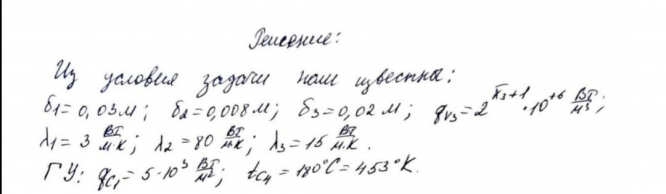 Решение:
Из условия задачи нам известны:
δ1=0,03м; δ2=0,008м; δ3=0,02м; qv3=2^(x̄3+1)·10^(+6) Вт/м³;
λ1=3 Вт/м·К; λ2=80 Вт/м·К; λ3=15 Вт/м·К.
ГУ: qc1=5·10³ Вт/м²; tc4=180°C=453°К.